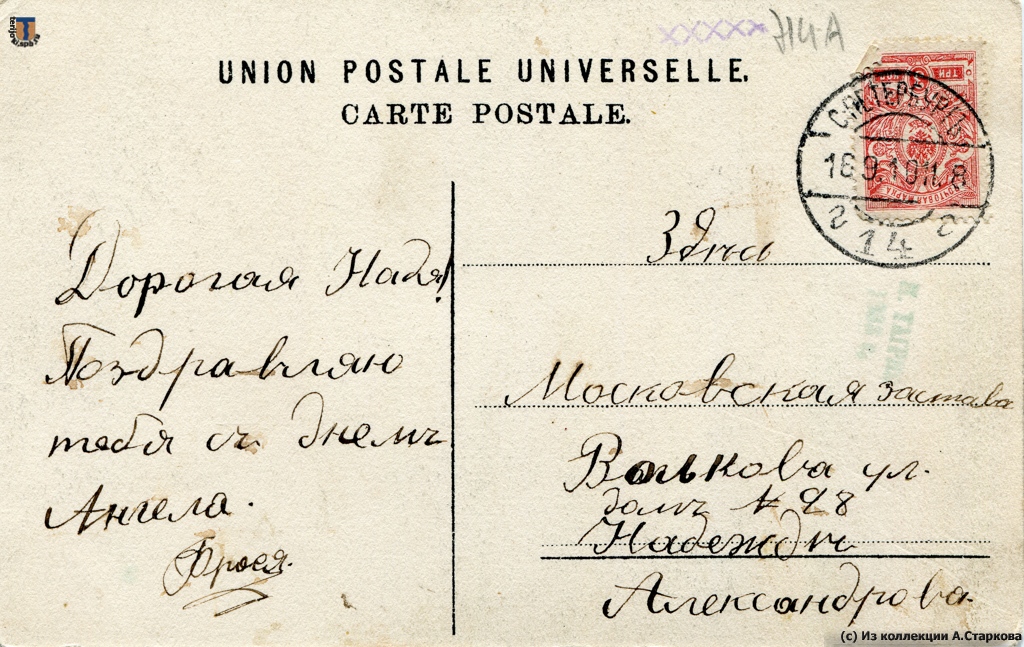 terijoki.spb.ru
xxxxx 714A
UNION POSTALE UNIVERSELLE.
CARTE POSTALE.
С.ПЕТЕРБУРГЪ
16.9.1911.8
г 14 г
ПОЧТОВАЯ МАРКА
ТРИ КОП
Дорогая Надя!
Поздравляю
тебя съ днемъ
Ангела.
Фрося.
Здѣсь
Московская застава
Волькова ул.
домъ № 28
Надеждѣ
Александрова.
(c) Из коллекции А.Старкова